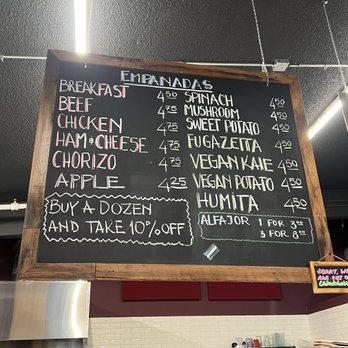 EMPANADAS
BREAKFAST 4.50
BEEF 4.75
CHICKEN 4.75
HAM & CHEESE 4.75
CHORIZO 4.75
APPLE 4.25
BUY A DOZEN
AND TAKE 10% OFF
SPINACH 4.50
MUSHROOM 4.50
SWEET POTATO 4.50
FUGAZETTA 4.50
VEGAN KALE 4.50
VEGAN POTATO 4.50
HUMITA 4.50
ALFAJOR 1 FOR 3.00
3 FOR 8.00
SORRY, WE
ARE OUT OF